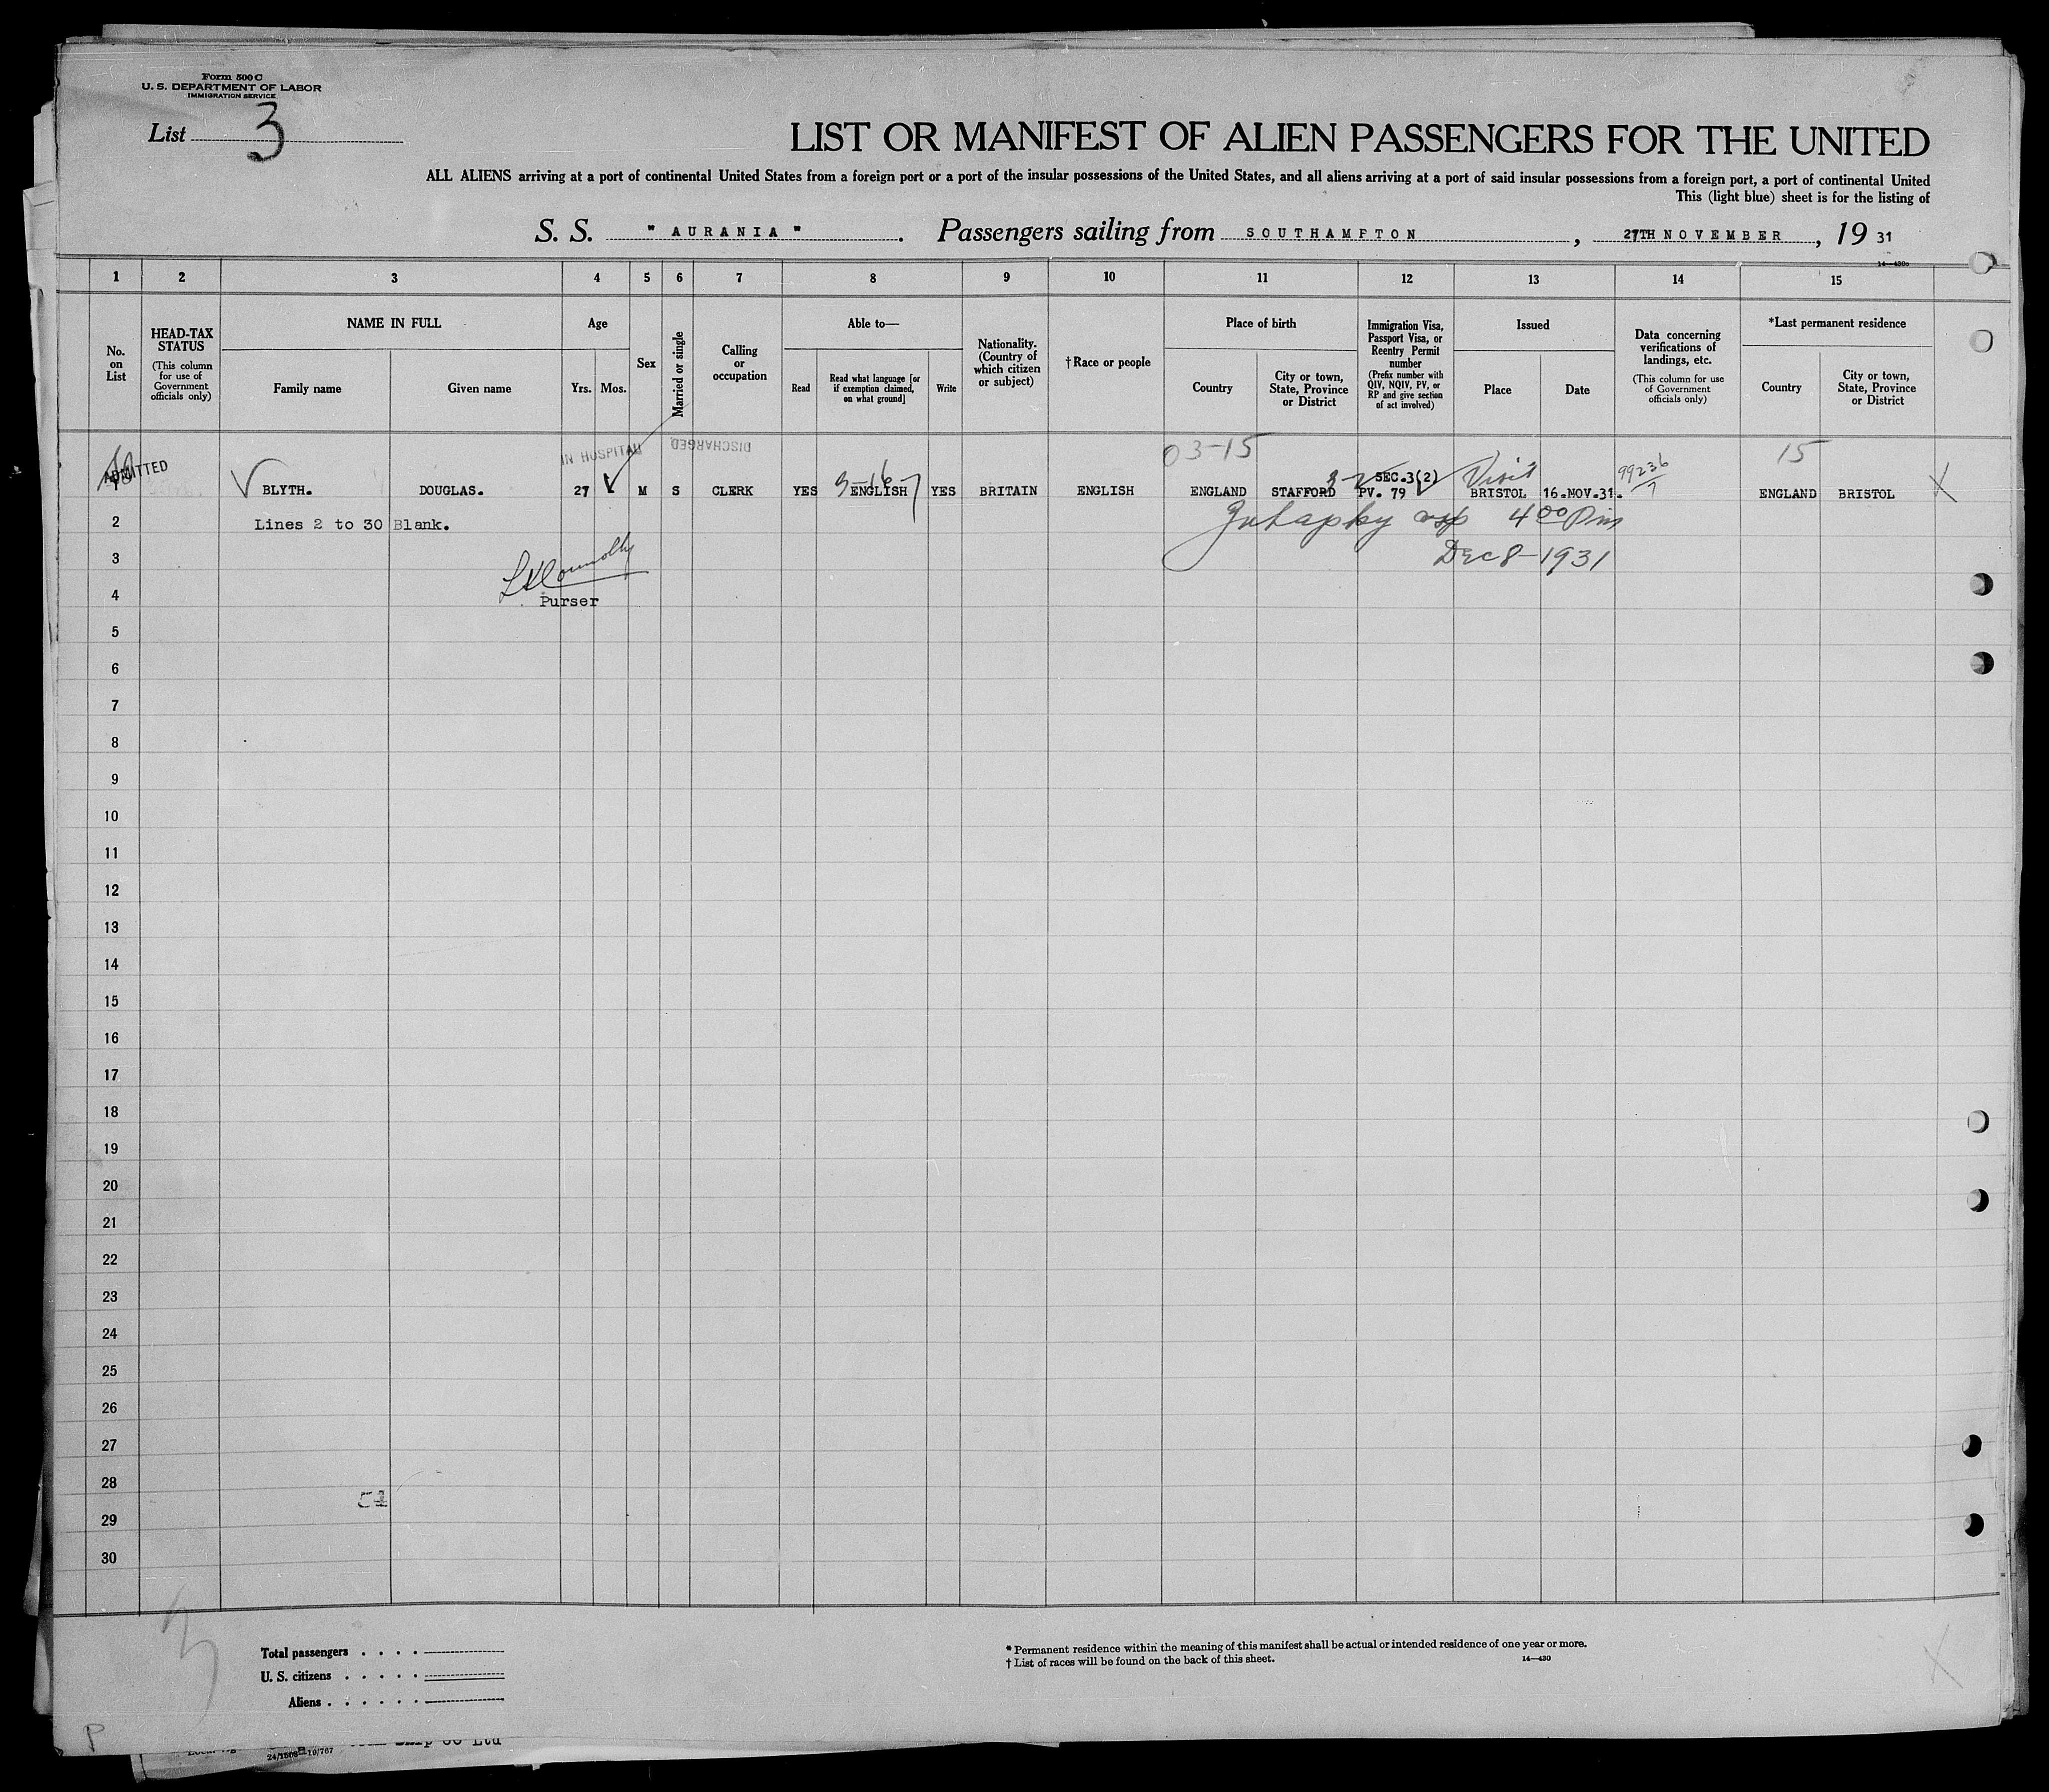 Form 500 C
U. S. DEPARTMENT OF LABOR
IMMIGRATION SERVICE
List 3
LIST OR MANIFEST OF ALIEN PASSENGERS FOR THE UNITED
ALL ALIENS arriving at a port of continental United States from a foreign port or a port of the insular possessions of the United States, and all aliens arriving at a port of said insular possessions from a foreign port, a port of continental United
This (light blue) sheet is for the listing of
S. S. " AURANIA ". Passengers sailing from SOUTHAMPTON, 27TH NOVEMBER, 19 31
14—430
1 2 3 4 5 6 7 8 9 10 11 12 13 14 15
No. on List
HEAD-TAX STATUS
(This column for use of Government officials only)
NAME IN FULL
Family name
Given name
Age
Yrs.
Mos.
Sex
Married or single
Calling or occupation
Able to—
Read
Read what language [or if exemption claimed, on what ground]
Write
Nationality. (Country of which citizen or subject)
†Race or people
Place of birth
Country
City or town, State, Province or District
Immigration Visa, Passport Visa, or Reentry Permit number
(Prefix number with QIV, NQIV, PV, or RP and give section of act involved)
Issued
Place
Date
Data concerning verifications of landings, etc.
(This column for use of Government officials only)
*Last permanent residence
Country
City or town, State, Province or District
IN HOSPITAL DISCHARGED 03-15 15
ADMITTED SEC.3(2) Visit 99236/7
BLYTH. DOUGLAS. 27 M S CLERK YES ENGLISH YES BRITAIN ENGLISH ENGLAND STAFFORD PV. 79 BRISTOL 16.NOV.31. ENGLAND BRISTOL X
3-16-7
2 Lines 2 to 30 Blank. 4 00 Pm
3 Dec 8-1931
4 Purser
5
6
7
8
9
10
11
12
13
14
15
16
17
18
19
20
21
22
23
24
25
26
27
28
29
30
Total passengers
U. S. citizens
Aliens
* Permanent residence within the meaning of this manifest shall be actual or intended residence of one year or more.
† List of races will be found on the back of this sheet.
14—430
X
P